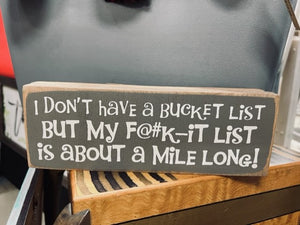 I DON'T HAVE A BUCKET LIST
BUT MY F@#K-IT LIST
IS ABOUT A MILE LONG!